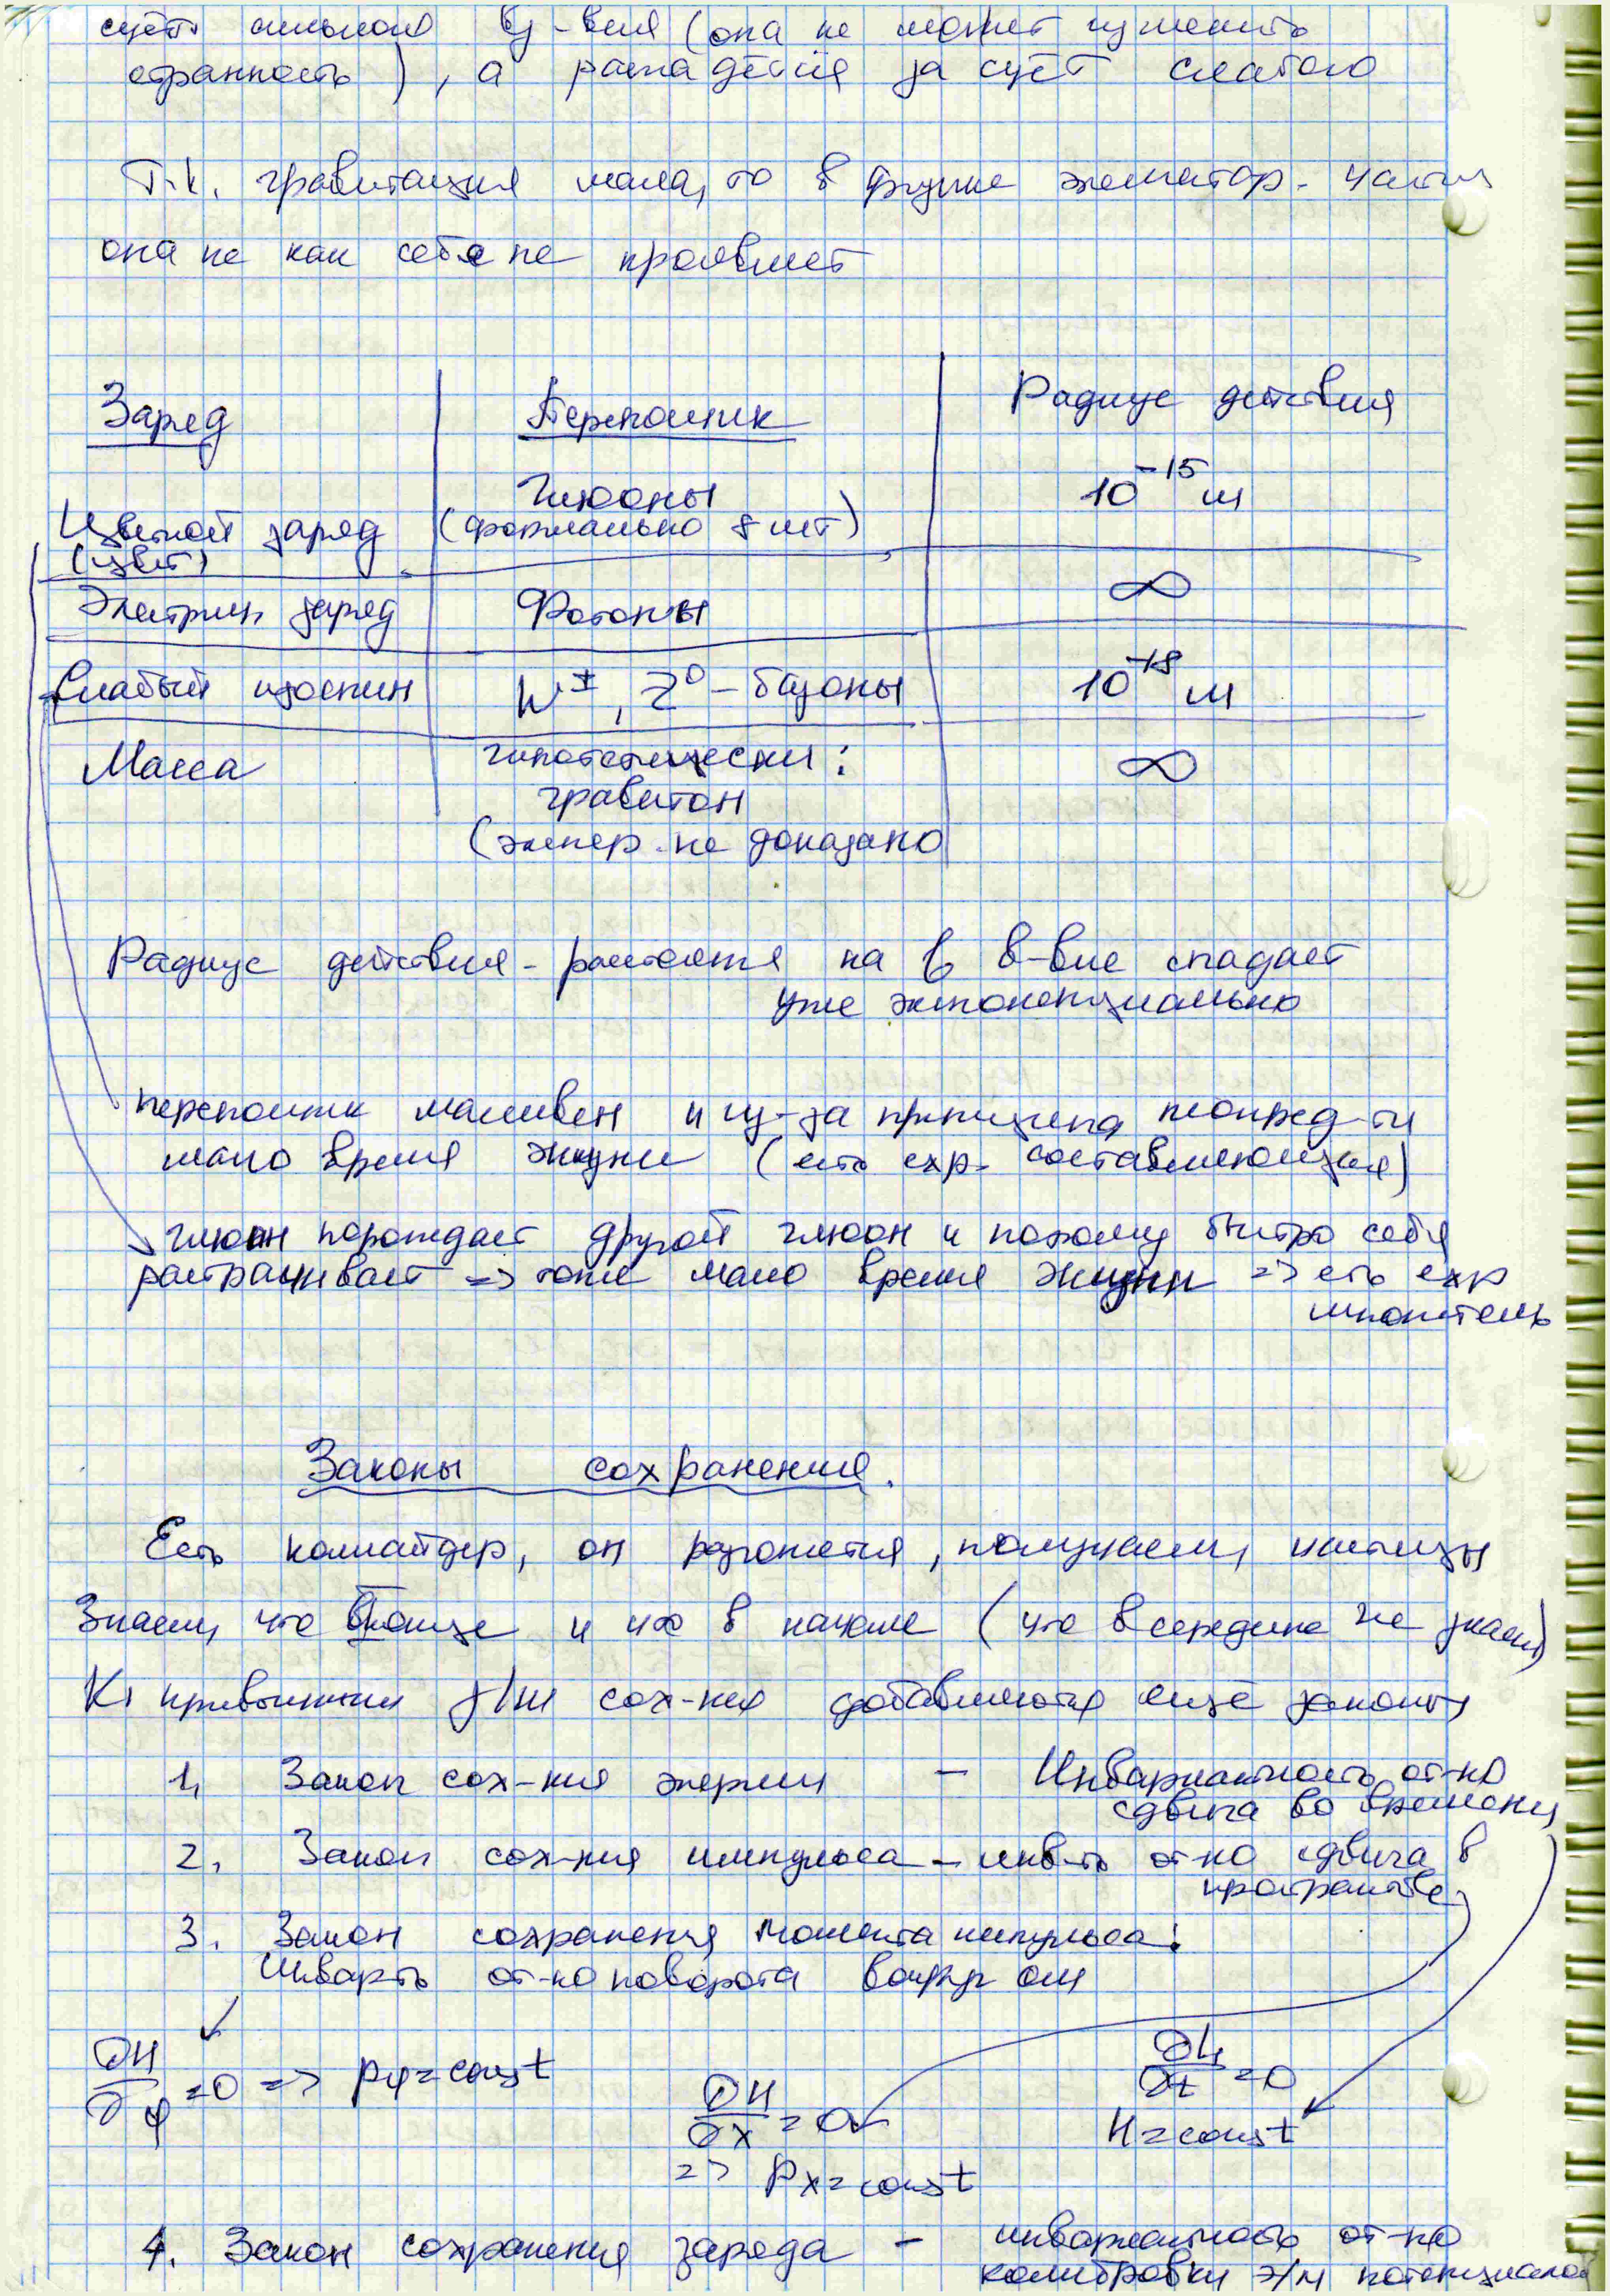 счёт сильного вз-вия (она не может изменить
странность), а распадётся за счёт слабого
Т.к. гравитация мала, то в физике элементар. частиц
она не как себя не проявляет
Заряд
Переносчик
Радиус действия
Цветной заряд
(цвет)
Глюоны
(формально 8 шт)
10⁻¹⁵ м
Электрич заряд
Фотоны
∞
Слабый изоспин
W±, Z⁰ - бозоны
10⁻¹⁸ м
Масса
гипотетически:
гравитон
(экспер. не доказано
∞
Радиус действия - расстояние на в-вие спадает
уже экспоненциально
переносчик массивен и из-за принципа неопред-ти
мало время жизни (есть exp. составляющая)
глюон порождает другой глюон и поэтому быстро себя
растрачивает => тоже мало время жизни => есть exp
множитель
Законы сохранения.
Есть коллайдер, он разгоняется, получаем частицы
Знаем, что в конце и что в начале (что в середине не знаем)
К привычным з/нам сох-ния добавляются ещё законы
1. Закон сох-ния энергии - Инвариантность от-но
сдвига во времени
2. Закон сох-ния импульса - инв-ть от-но сдвига в
пространстве
3. Закон сохранения момента импульса:
Инварть от-но поворота вокруг оси
∂H/∂φ = 0 => pφ = const
∂H/∂x = 0
=> Px = const
∂L/∂t = 0
H = const
4. Закон сохранения заряда - инвариантность от-но
калибровки э/м потенциалов